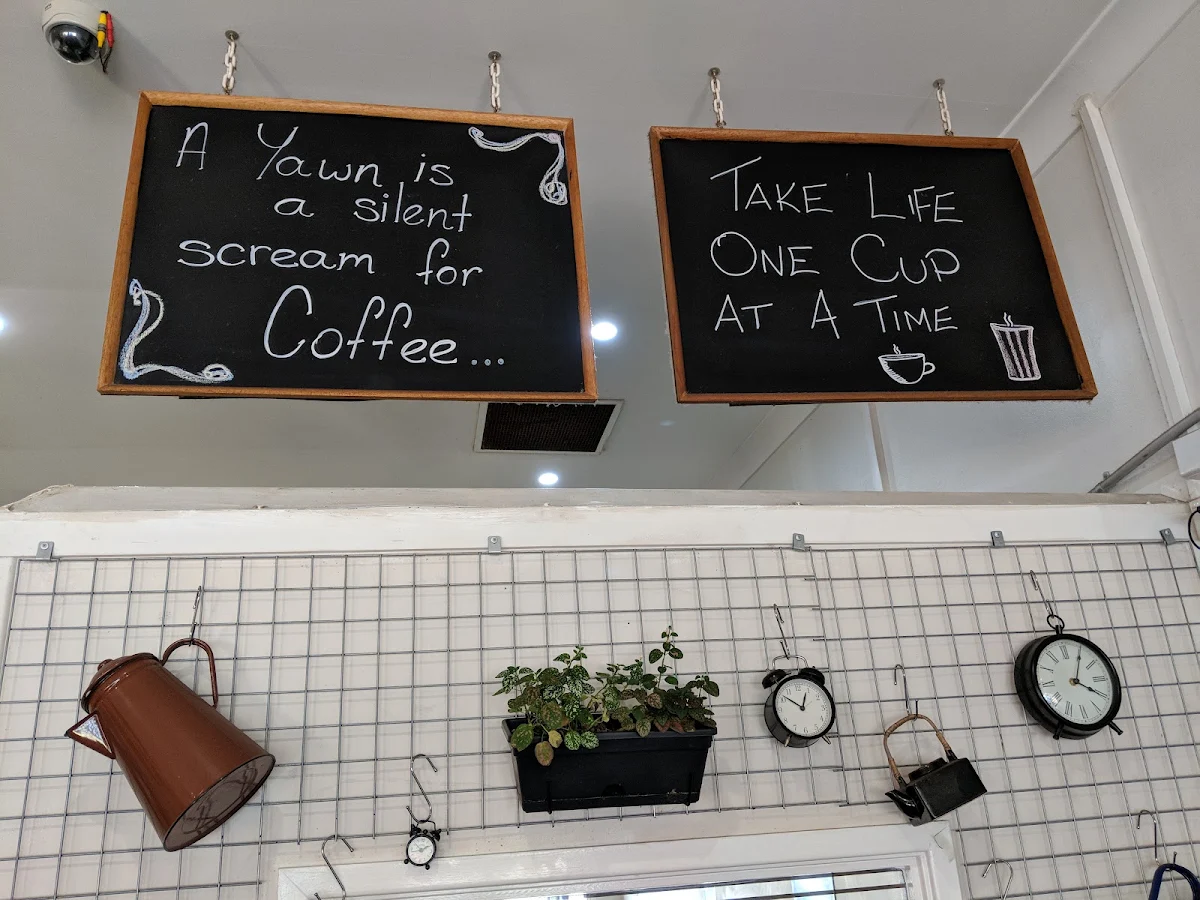 A Yawn is
a silent
scream for
Coffee...
TAKE LIFE
ONE CUP
AT A TIME